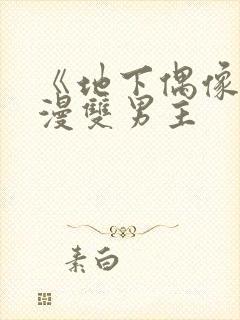 《地下偶像
漫雙男主
素白